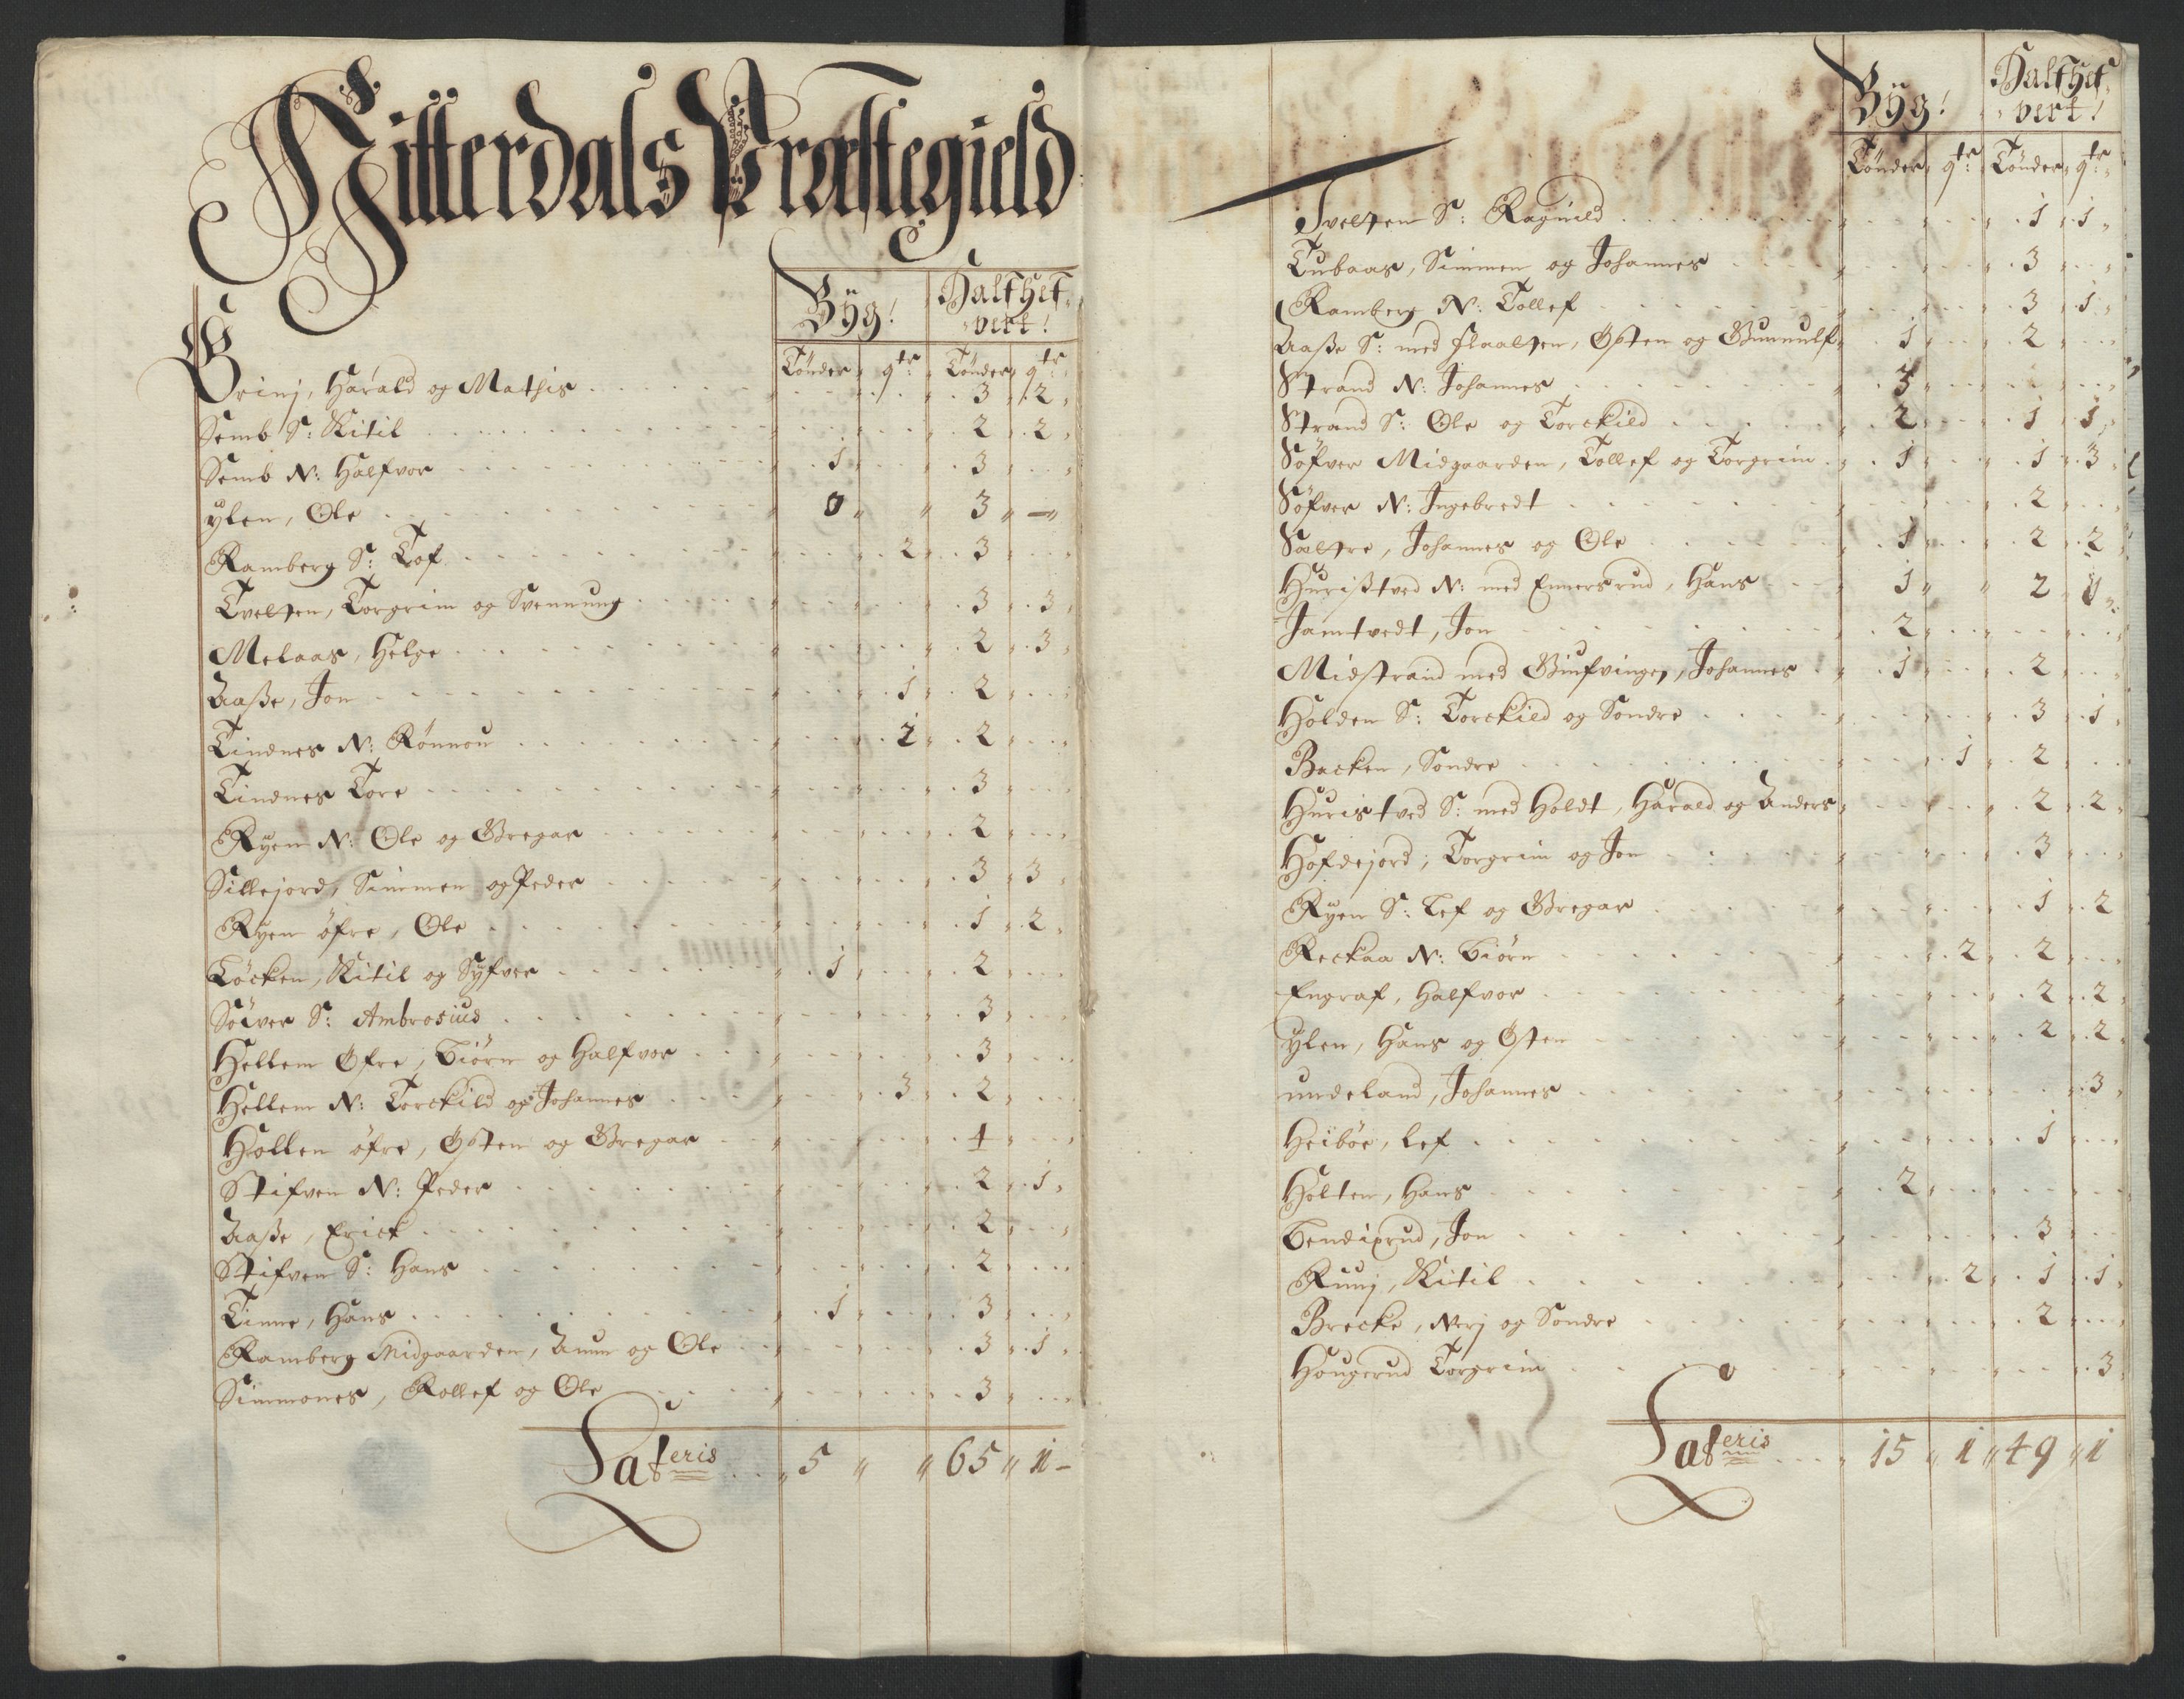 Hitterdals Præstegield
Byg! Halfhef-
vert!
Tønder qtr Tønder qtr
Grinj, Harald og Mathis 3 2
Semb S: Kitil 2 2
Semb N: Halfvor 1 3
ylen, Ole 0 3 —
Ramberg S: Tof 2 3
Tvelten, Torgrim og Svennung 3 3
Melaas, Helge 2 3
Aaße, Jon 1 2
Tindnes N: Rönnou 2 2
Tindnes Tore 3
Ryen N: Ole og Gregar 2
Sillejord, Simmen og Peder 3 3
Ryen öfre, Ole 1 2
Löcken, Kitil og Syfver 1 2
Söiver S: Ambrosius 3
Hellem Öfre, Biörn og Halfvor 3
Hellem N: Torckild og Johannes 3 2
Hollen öfre, Östen og Gregar 4
Stifven N: Peder 2 1
Aaße, Erick 2
Stifven S: Hans 2
Tinne, Hans 1 3
Ramberg Midgaarden, Aunn og Ole 3 1
Simmones, Rollef og Ole 3
Lateris 5 65 1
Byg! Halfhef-
vert!
Tönder qtr Tönder qtr
Tvelten S: Ragnild 1 1
Tubaas, Simmen og Johannes 3
Ramberg N: Tollef 3 1
Aaße S: med flaalten, Östen og Gunnulf 1 2
Strand N: Johannes 3
Strand S: Ole og Torckild 2 1 1
Söfver Midgaarden, Tollef og Torgrim 1 1 3
Söfver N: Ingebredt 2
Sæltre, Johannes og Ole 1 2 2
Huristved N: med Ennersrud, Hans 1 2
Jamtvedt, Jon 2
Midstrand med Johannes 1 2
Holden S: Torckild og Sondre 3 1
Backen, Sondre 1 2
Huristved S: med Holdt, Harald og Anders 2 2
Hofdejord, Torgrim og Jon 3
Ryen S: Lef og Gregar 1 2
Reckaa N: Biörn 2 2
Engraf, Halfvor 2 2
ylen, Hans og Östen 2 2
undeland, Johannes 3
Heiböe, Lef 1
Holten, Hans 2
Bendixrud, Jon 3
Ruuj, Kitil 2 1 1
Brecke, Nerj og Sondre 2
Hougerud Torgrim 3
Lateris 15 1 49 1